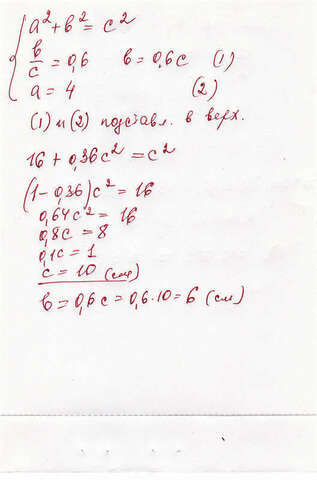 a² + b² = c²
b/c = 0,6   b = 0,6c   (1)
a = 4   (2)
(1) и (2) подставл. в верх.
16 + 0,36c² = c²
(1 - 0,36)c² = 16
0,64c² = 16
0,8c = 8
0,1c = 1
c = 10 (см)
b = 0,6c = 0,6·10 = 6 (см)